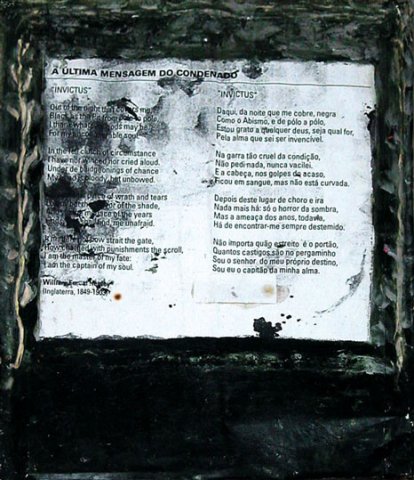 A ÚLTIMA MENSAGEM DO CONDENADO
"INVICTUS"
Out of the night that covers me,
Black as the pit from pole to pole,
I thank gods may be
For my soul.
In the fell clutch of circumstance
I have not winced nor cried aloud.
Under the bludgeonings of chance
My head is bloody, but unbowed.
of wrath and tears
of the shade,
of the years
me, unafraid.
how strait the gate,
How charged with punishments the scroll,
I am the master of my fate:
I am the captain of my soul.
(Inglaterra, 1849-1903)
"INVICTUS"
Daqui, da noite que me cobre, negra
Como o Abismo, e de pólo a pólo,
Estou grato a qualquer deus, seja qual for,
Pela alma que sei ser invencível.
Na garra tão cruel da condição,
Não pedi nada, nunca vacilei.
E a cabeça, nos golpes do acaso,
Ficou em sangue, mas não está curvada.
Depois deste lugar de choro e ira
Nada mais há: só o horror da sombra,
Mas a ameaça dos anos, todavia,
Há de encontrar-me sempre destemido.
Não importa quão estreito é o portão,
Quantos castigos são no pergaminho
Sou o senhor do meu próprio destino,
Sou eu o capitão da minha alma.